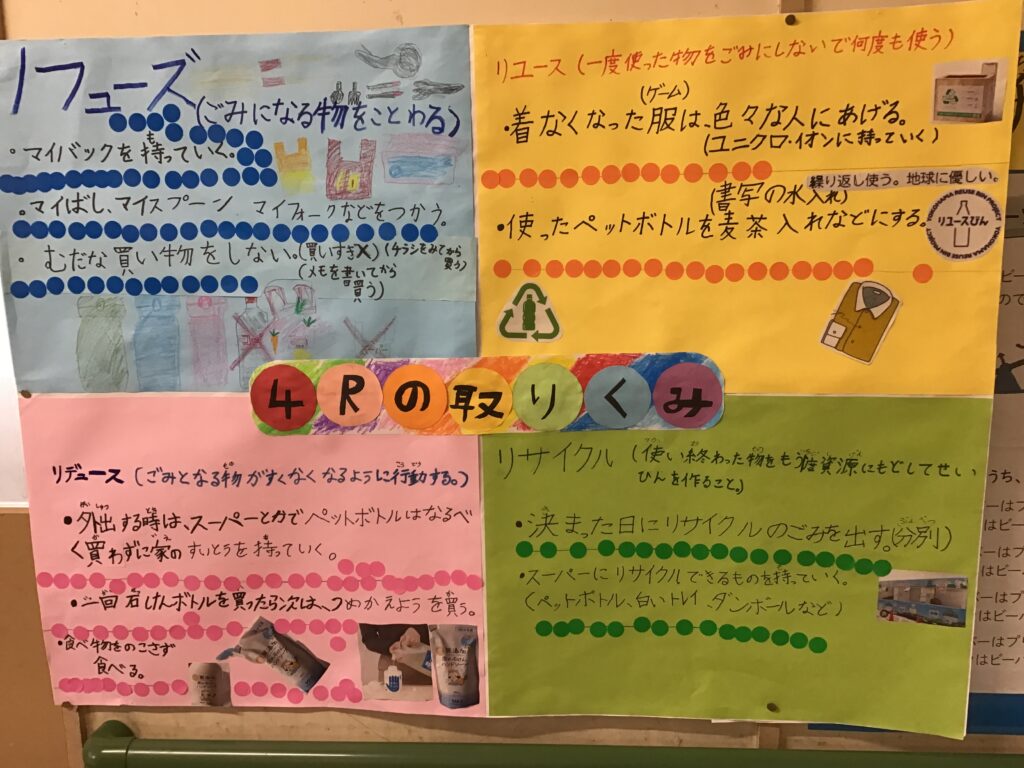 リフューズ
(ごみになる物をことわる)
・マイバックを持っていく。
も
・マイばし、マイスプーン マイフォークなどをつかう。
・むだな買い物をしない。(買いすぎX)(チラシをみてから買う)
(メモを書いてから買う)
リユース(一度使った物をごみにしないで何度も使う)
(ゲーム)
・着なくなった服は、色々な人にあげる。
(ユニクロ・イオンに持っていく)
繰り返し使う。地球に優しい。
(書写の水入れ)
・使ったペットボトルを麦茶入れなどにする。
リユースびん
4Rの取りくみ
リデュース(ごみとなる物がすくなくなるように行動する。)
・外出する時は、スーパーとかでペットボトルはなるべ
く買わずに家のすいとうを持っていく。
・一回石けんボトルを買ったら次は、つめかえようを買う。
・食べ物をのこさず
食べる。
リサイクル(使い終わった物をも資源にもどしてせい
ひんを作ること。)
・決まった日にリサイクルのごみを出す。(分別)
・スーパーにリサイクルできるものを持っていく。
(ペットボトル、白いトレイ、ダンボールなど)